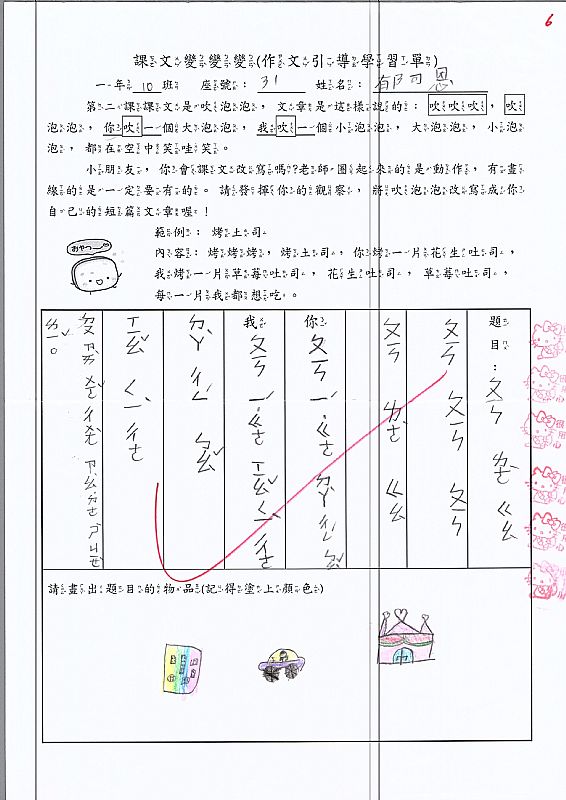 6
課文變變變(作文引導學習單)
一年10班 座號：31 姓名：
第二課課文是吹泡泡，文章是這樣說的：吹吹吹，吹
泡泡，你吹一個大泡泡，我吹一個小泡泡，大泡泡，小泡
泡，都在空中笑哇笑。
小朋友，你會課文改寫嗎?老師圈起來的是動作，有畫
線的是一定要有的。請發揮你的觀察，將吹泡泡改寫成你
自己的短篇文章喔！
範例：烤土司
內容：烤烤烤，烤土司，你烤一片花生吐司，
我烤一片草莓吐司，花生吐司，草莓吐司，
每一片我都想吃。
題目：ㄆㄢ ㄍㄠ
ㄆㄢ ㄆㄢ ㄆㄢ
ㄆㄢ ㄍㄠ
你 ㄆㄢ ㄧˊ ㄍㄜ ㄉㄚˋ
我 ㄆㄢ ㄧˊ ㄍㄜ ㄒㄧㄠˇ ㄑㄧˋ ㄔㄜ
ㄉㄚˋ ㄅㄠˇ
ㄒㄧㄠˇ ㄑㄧˋ ㄔㄜ
請畫出題目的物品(記得塗上顏色)